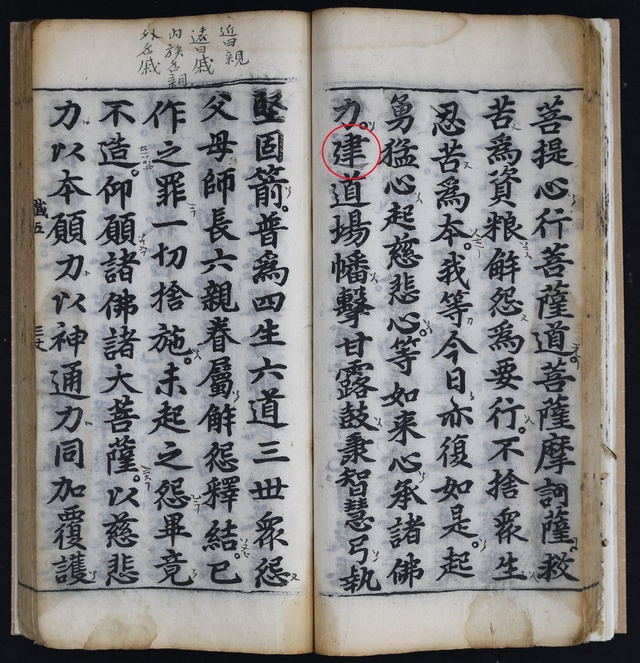 菩提心行菩薩道。菩薩摩訶薩。救
苦爲資粮解怨爲要行。不捨衆生
忍苦爲本。我等今日亦復如是起
勇猛心起慈悲心。等如来心承諸佛
力。建道場幡擊甘露鼓秉智慧弓執
近曰親
遠曰戚
内族為親
外為戚
堅固箭。普爲四生六道三世衆怨
父母師長六親眷屬解怨釋結。已
作之罪一切捨施。未起之怨畢竟
不造。仰願諸佛諸大菩薩。以慈悲
力以本願力以神通力同加覆護
懺五